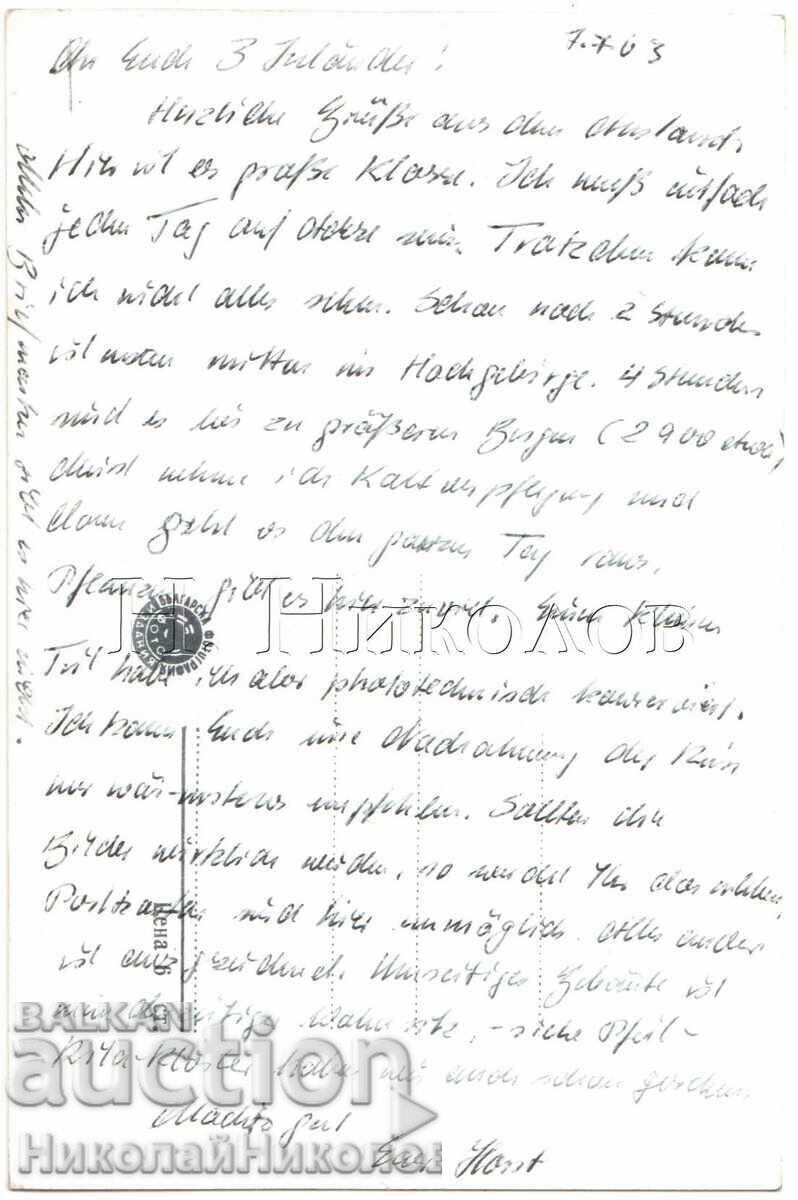 7.7.63
An Euch 3 Inländer!
Herzliche Grüße aus dem Ausland.
Hier ist es große Klasse. Ich muß einfach
jeden Tag auf Achse sein. Trotzdem kann
ich nicht alles sehen. Schon nach 2 Stunden
ist man mitten im Hochgebirge. 4 Stunden
sind es bis zu größeren Bergen (2900 etwa),
meist nehme ich Kaltverpflegung und
dann geht es den ganzen Tag raus.
Pflanzen gibt es hier Einen kleinen
Teil habe ich aber phototechnisch konserviert.
Ich kann Euch eine Nachahmung der Reise
nur wärmstens empfehlen. Sollten die
Bilder wirklich werden, so werdet Ihr das sehen,
Postkarten sind hier unmöglich. Alles andere
ist ausgezeichnet. Umseitiges Gebäude ist
mein derzeitiger Wohnsitz, - siehe Pfeil -
Rila-Kloster haben wir auch schon gesehen
Machts gut
Euer Horst
Mehr Briefmarken gibt es hier nicht.
БЪЛГАРСКА ФОТОГРАФИЯ
Цена
Н Николов
BALKAN
auction
НиколайНиколов